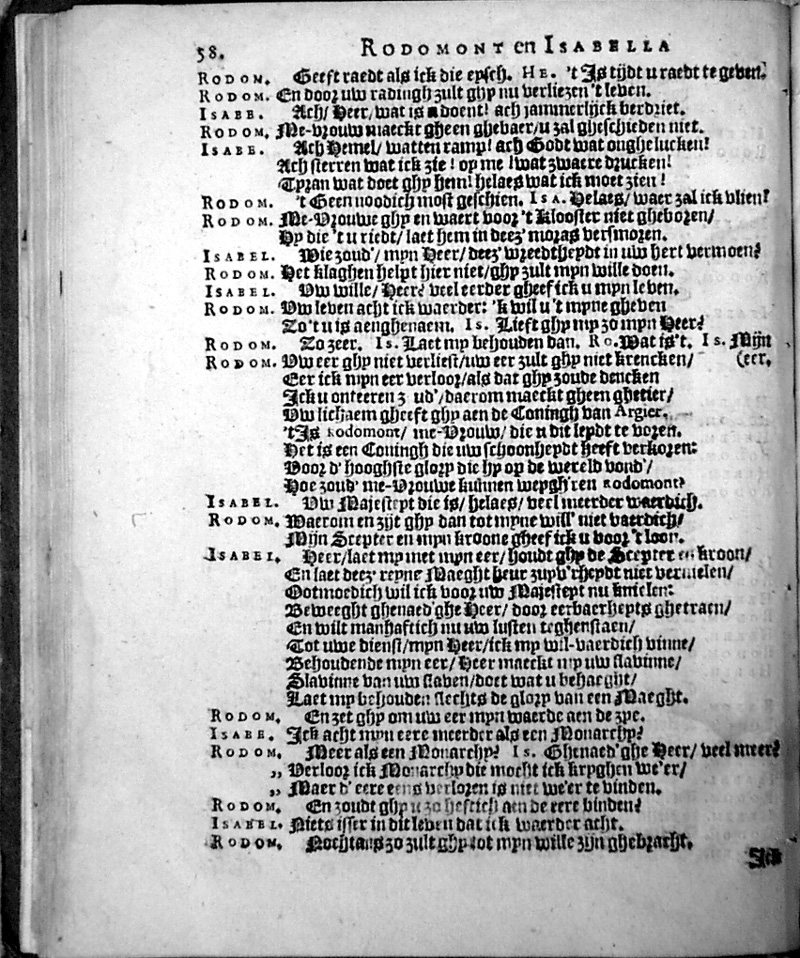 58. RODOMONT en ISABELLA
RODOM. Geeft raedt als ick die eysch. HE. 't Is tijdt u raedt te geven.
RODOM. En door uw radingh zult ghy nu verliezen 't leven.
ISABE. Ach/ Heer/ wat is u doent! ach jammerlijck verdriet.
RODOM. Me-vrouw maeckt gheen ghebaer/ u zal gheschieden niet.
ISABE. Ach Hemel/ watten ramp! ach Godt wat onghelucken!
Ach sterren wat ick zie! op me! wat zwaere drucken!
Tyran wat doet ghy hem! helaes wat ick moet zien!
RODOM. 't Geen noodich most geschien. ISA. Helaes/ waer zal ick vlien?
RODOM. Me-Vrouwe ghy en waert voor 't klooster niet gheboren/
Hy die 't u riedt/ laet hem in deez' moras versmoren.
ISABEL. Wie zoud'/ myn Heer/ deez' wreedtheydt in uw hert vermoen?
RODOM. Het klaghen helpt hier niet/ ghy zult myn wille doen.
ISABEL. Uw wille/ Heer? veel eerder gheef ick u myn leven.
RODOM. Uw leven acht ick waerder: 'k wil u 't myne gheven
Zo 't u is aenghenaem. IS. Lieft ghy my zo myn Heer?
RODOM. Zo zeer. IS. Laet my behouden dan. RO. Wat is 't. IS. Mijn
RODOM. Uw eer ghy niet verliest/ uw eer zult ghy niet krencken/ (eer.
Eer ick myn eer verloor/ als dat ghy zoude dencken
Ick u onteeren z ud'/ daerom maeckt gheen ghetier/
Uw lichaem gheeft ghy aen de Coningh van Argier.
't Is Rodomont/ me-Vrouw/ die u dit leydt te voren.
Het is een Coningh die uw schoonheydt heeft verkoren:
Voor d' hooghste glory die hy op de wereld vond'/
Hoe zoud' me-Vrouwe kunnen weygh'ren Rodomont?
ISABEL. Uw Majesteyt die is/ helaes/ veel meerder waerdich.
RODOM. Waerom en zijt ghy dan tot myne will' niet vaerdich/
Mijn Scepter en myn kroone gheef ick u voor 't loon.
ISABEL. Heer/ laet my met myn eer/ houdt ghy de Scepter en kroon/
En laet deez' reyne Maeght heur zuyv'rheydt niet vernielen/
Ootmoedich wil ick voor uw Majesteyt nu knielen:
Beweeght ghenaed'ghe Heer/ door eerbaerheyts ghetraen/
En wilt manhaftich nu uw lusten teghenstaen/
Tot uwe dienst/ myn Heer/ ick my wil-vaerdich vinne/
Behoudende myn eer/ Heer maeckt my uw slavinne/
Slavinne van uw slaven/ doet wat u behaeght/
Laet my behouden slechts de glory van een Maeght.
RODOM. En zet ghy om uw eer myn waerde aen de zye.
ISABE. Ick acht myn eere meerder als een Monarchy?
RODOM. Meer als een Monarchy? IS. Ghenaed'ghe Heer/ veel meer?
„ Verloor ick Monarchy die mocht ick kryghen we'er/
„ Maer d' eere eens verloren is niet we'er te vinden.
RODOM. En zoudt ghy u zo heftich aen de eere binden?
ISABEL. Niets isser in dit leven dat ick waerder acht.
RODOM. Nochtans zo zult ghy tot myn wille zijn ghebracht.